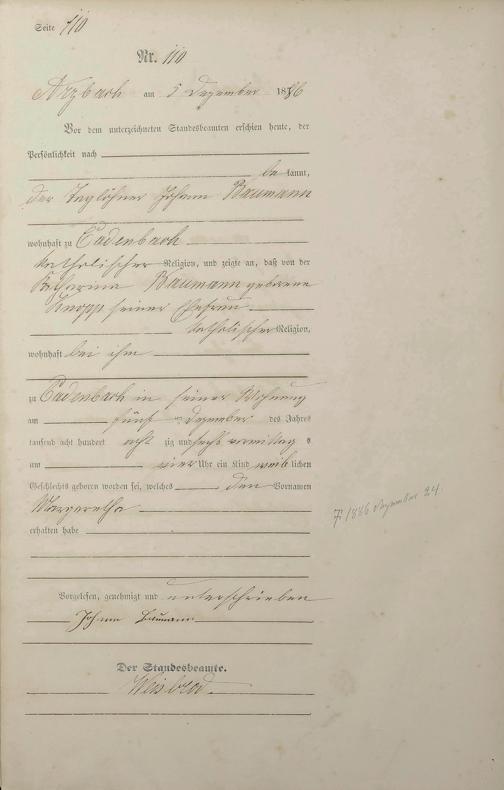 Seite 110
Nr. 110
Arzbach am 5 Dezember 1886
Vor dem unterzeichneten Standesbeamten erschien heute, der
Persönlichkeit nach
be kannt,
der Taglöhner Johann Baumann
wohnhaft zu Cadenbach
katholischer Religion, und zeigte an, daß von der
Katharina Baumann geborene
Knopp seiner Ehefrau
katholischer Religion,
wohnhaft bei ihm
zu Cadenbach in seiner Wohnung
am fünf Dezember des Jahres
tausend acht hundert acht zig und sechs vormittags
um vier Uhr ein Kind weib lichen
Geschlechts geboren worden sei, welches den Vornamen
Margaretha
erhalten habe
† 1886 Dezember 24.
Vorgelesen, genehmigt und unterschrieben
Johann Baumann
Der Standesbeamte.
Weisbrod